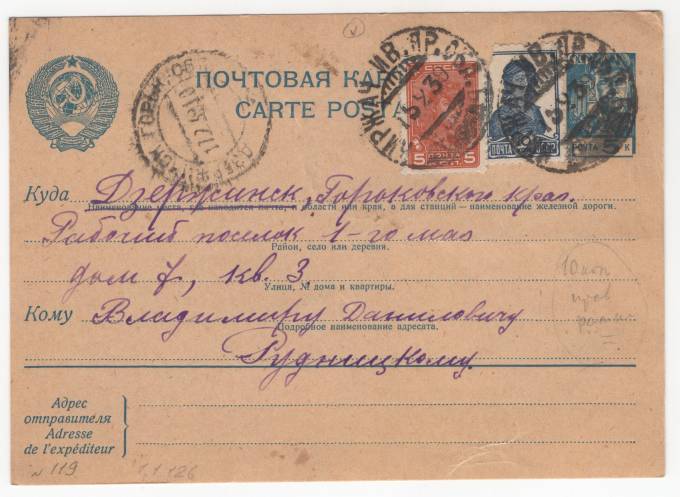 ПОЧТОВАЯ КАР
CARTE POS
ПОЧТА
5 К
5 ПОЧТА 5
ПОЧТА
КИРЖАЧ ИВ. ПР. ОБЛ.
ДЗЕРЖИНСК ГОРЬК. ОБ
Куда Дзержинск, Горьковского края.
Наименование места, где находится почта, и области или края, а для станций — наименование железной дороги.
Рабочий поселок 1-го мая
Район, село или деревня.
дом 7, кв. 3.
Улица, № дома и квартиры.
Кому Владимиру Даниловичу
Подробное наименование адресата.
Рудницкому.
10 коп
Адрес
отправителя
Adresse
de l'expéditeur
N 119 1.1.126